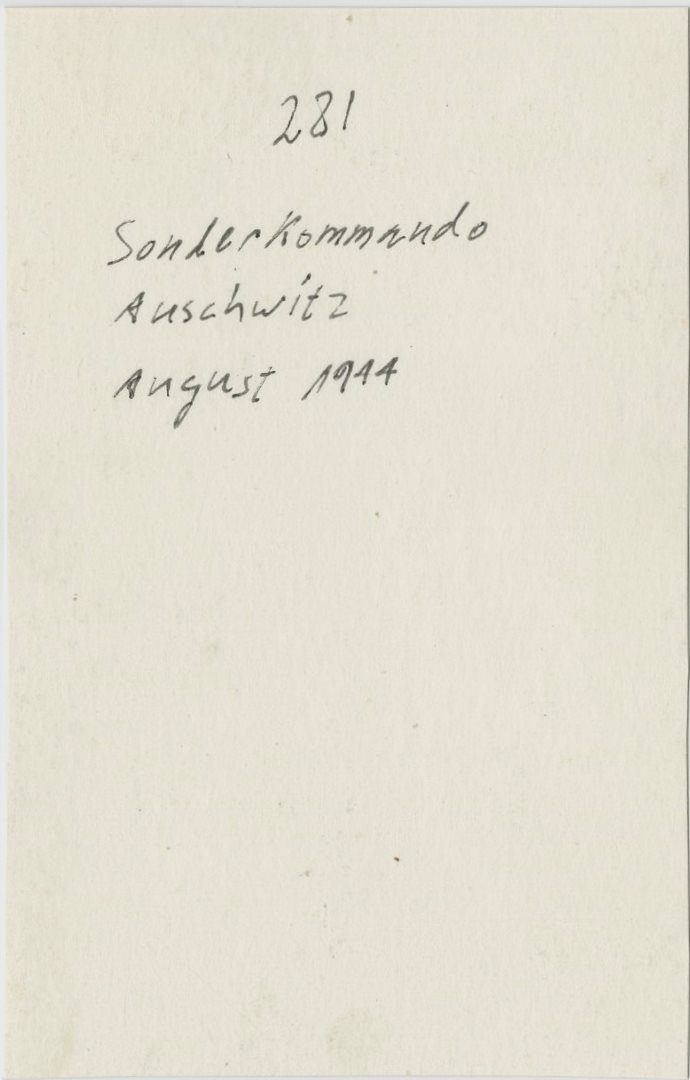 281
Sonderkommando
Auschwitz
August 1944